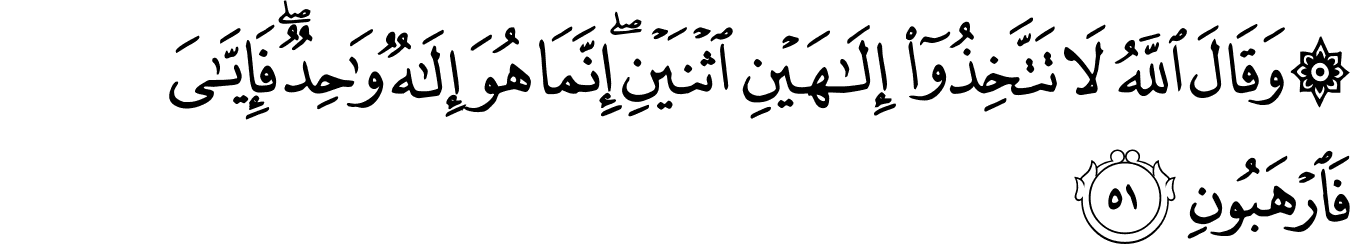 ۞ وَقَالَ ٱللَّهُ لَا تَتَّخِذُوٓا۟ إِلَـٰهَيْنِ ٱثْنَيْنِ ۖ إِنَّمَا هُوَ إِلَـٰهٌ وَٰحِدٌ ۖ فَإِيَّـٰىَ
فَٱرْهَبُونِ ٥١